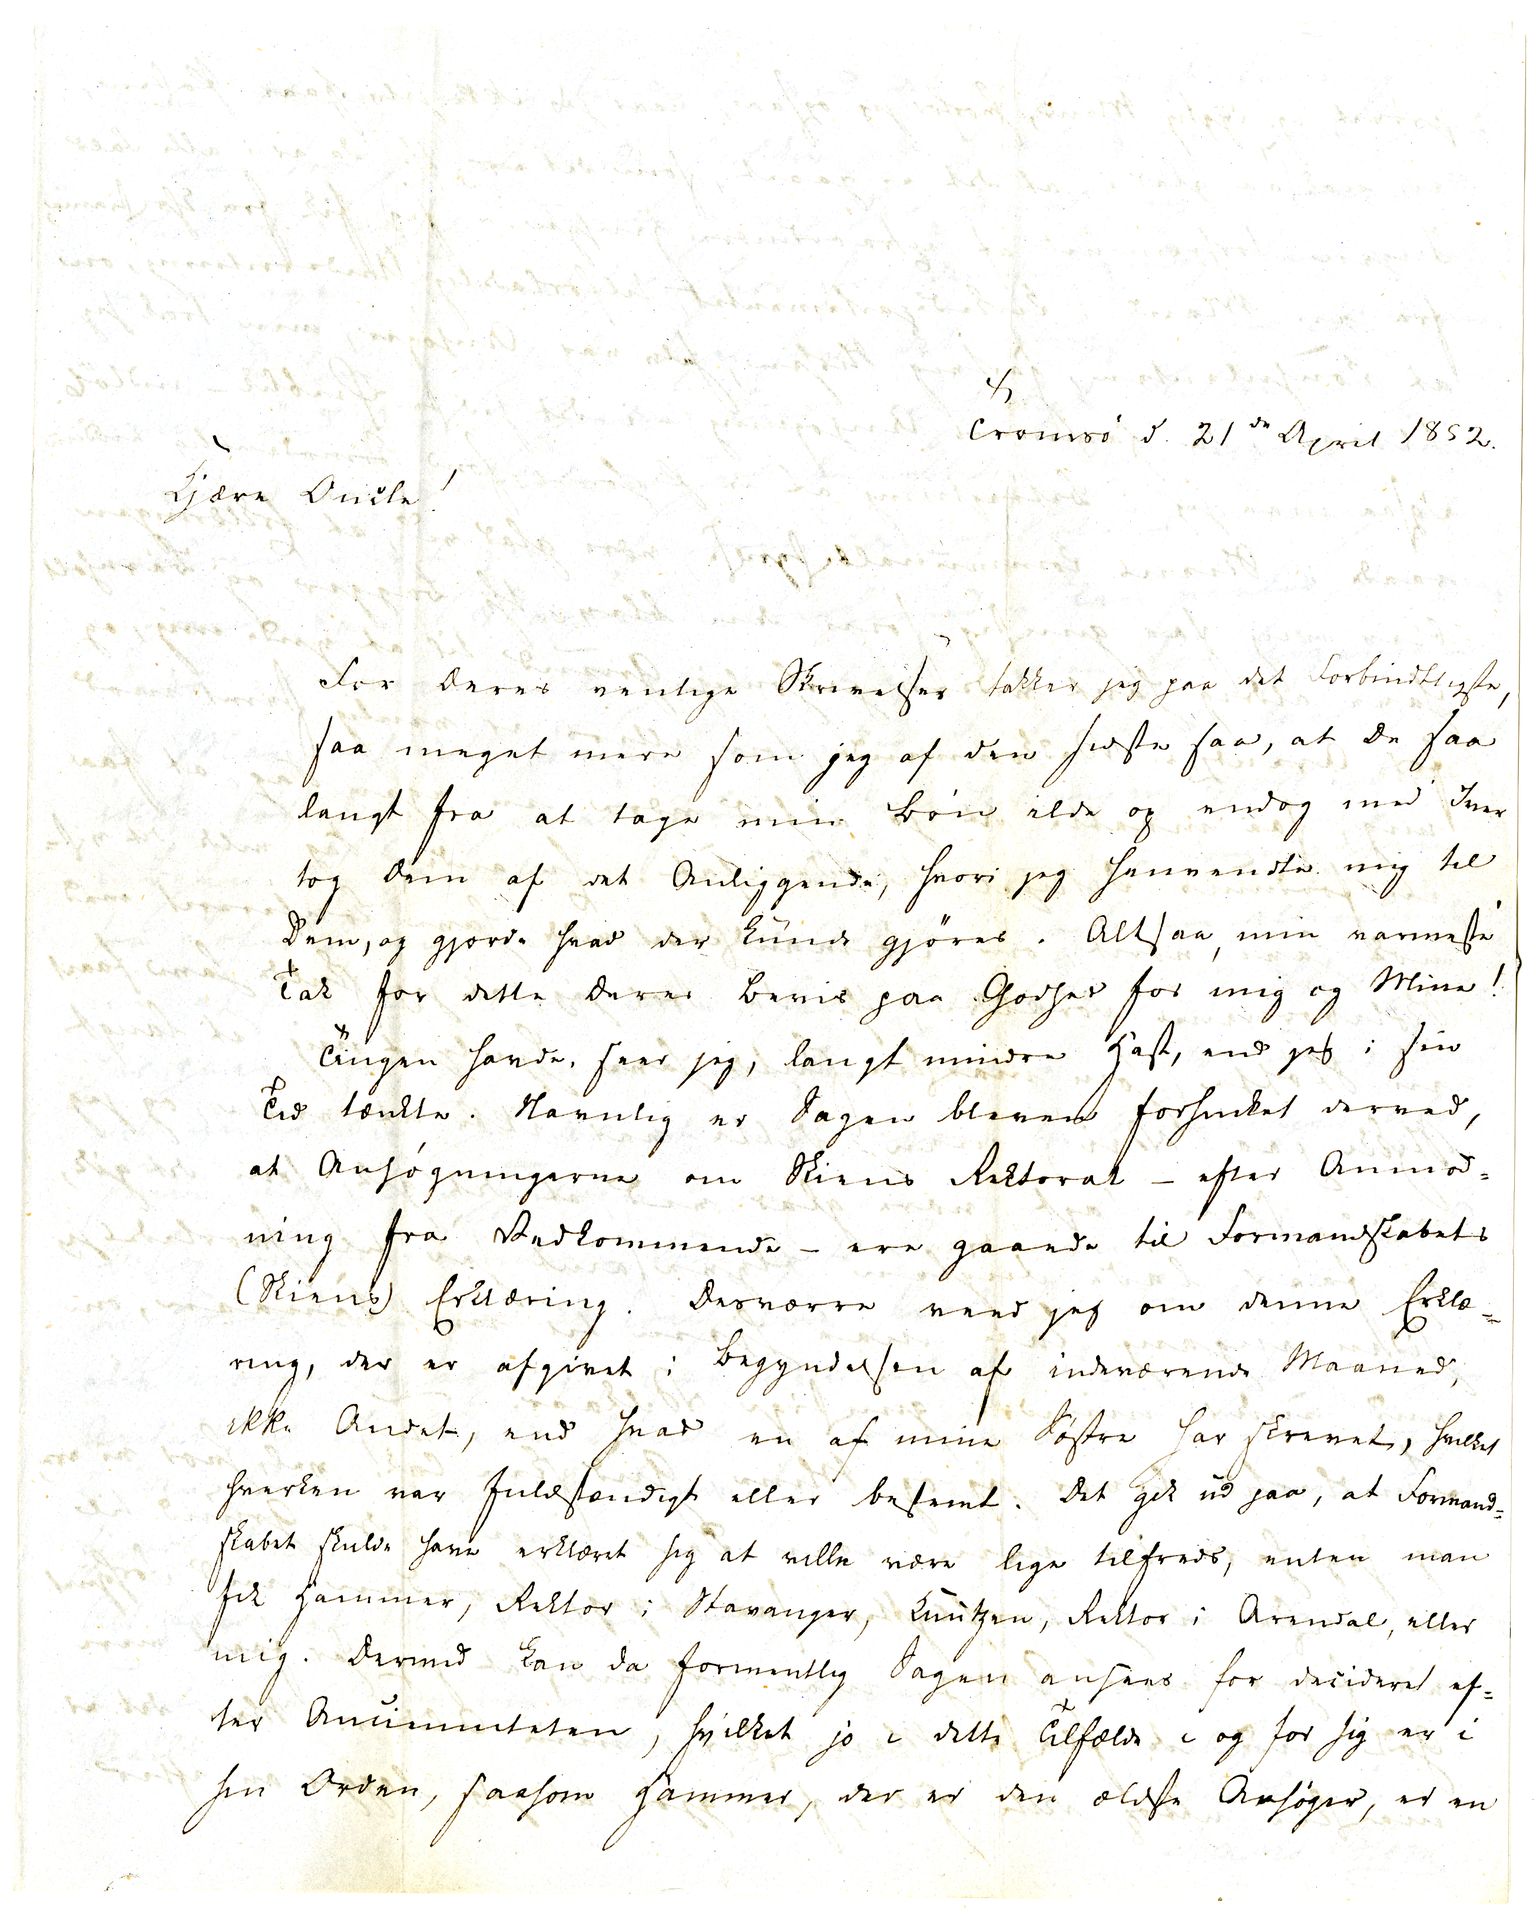 Tromsö d. 21de April 1852.
Kjære Oncle!
For Deres venlige Skrivelser takker jeg paa det Forbindtligste,
saa meget mere som jeg af den sidste saa, at De saa
langt fra at tage min Bön ilde op endog med Iver
tog Dem af det Anliggende, hvori jeg henvendte mig til
Dem, og gjorde hvad der kunde gjöres. Altsaa, min varmeste
Tak for dette Deres Bevis paa Godhed for mig og Mine!
Tingen havde, seer jeg, langt mindre Hast, end jeg i sin
Tid tænkte. Navnlig er Sagen bleven forsinket derved,
at Ansögningerne om Skiens Rektorat – efter Anmod=
ning fra Vedkommende – ere gaaede til Formandskabets
(Skiens) Erklæring. Desværre veed jeg om denne Erklæ=
ring, der er afgivet i Begyndelsen af indeværende Maaned,
ikke Andet, end hvad en af mine Söstre har skrevet, hvilket
hverken var fuldstændigt eller bestemt. Det gik ud paa, at Formand=
skabet skulde have erklæret sig at ville være lige tilfreds, enten man
fik Hammer, Rektor i Stavanger, Knutzen, Rektor i Arendal, eller
mig. Dermed kan da formentlig Sagen ansees for decideret ef=
ter Ancienniteten, hvilket jo i dette Tilfælde i og for sig er i
sin Orden, saasom Hammer, der er den ældste Ansöger, er en